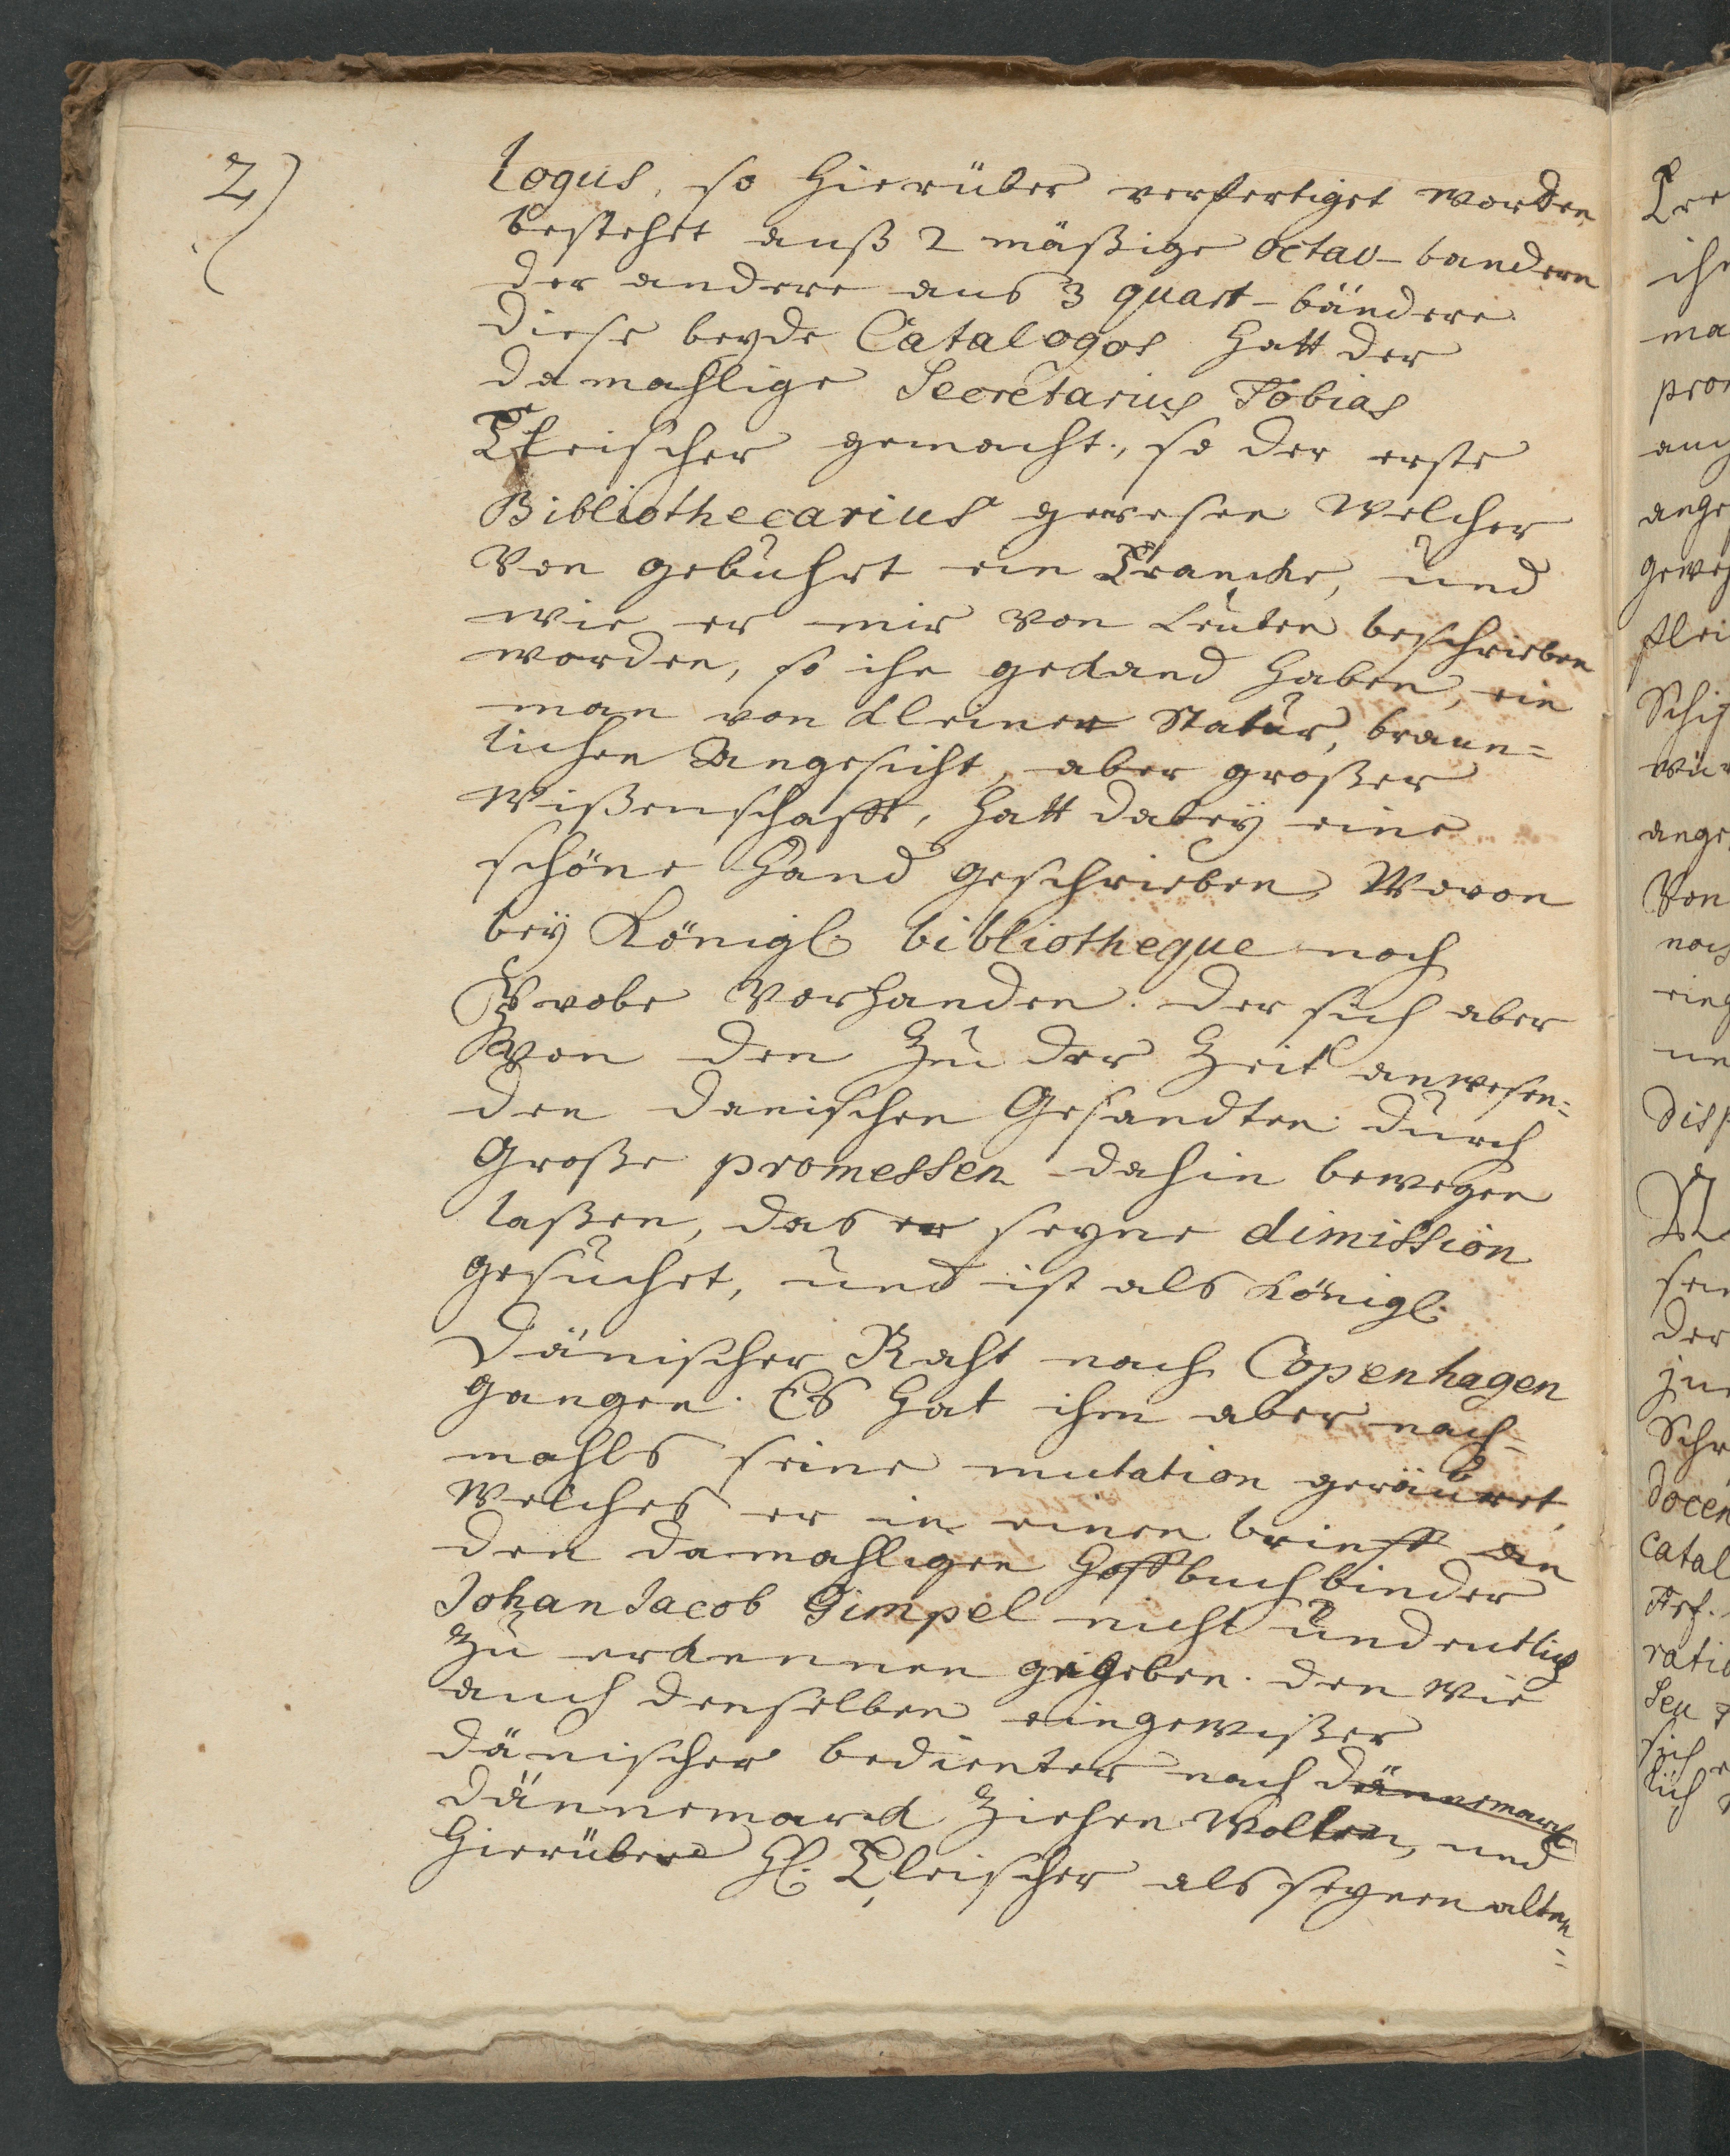 2)
logus, so hierüber verfertiget worden
bestehet auß 2 mäßige octav-banden
der andere aus 3 quart-bändere
diese beyde Catalogos hatt der
damahlige Secretarius Tobias
Fleischer gemacht, so der erste
Bibliothecarius gewesen welcher
Von gebuhrt ein Francke, und
wie er mir von Leuten beschrieben
worden, so ihn gekand haben, ein
man von kleiner Statur, braun-
lichen Angesicht, aber großer
Wißenschafft, hatt dabey eine
schöne Hand geschrieben, Wovon
bey Königl. bibliotheque noch
Probe Vorhanden. der sich aber
Von den zu der Zeit anwesen=
den danischen Gesandten durch
Große promessen dahin bewegen
laßen, das er seyne dimission
gesuchet, und ist als Königl.
Dänischer Raht nach Copenhagen
gangen. Es hat ihm aber nach-
mahls seine mutation geräuwet,
Welches er in einen brieff an
den damahligen Hoffbuchbinder
Johan Jacob Gimpel nicht undeutlich
zu erkennen gegeben. den wie
auch denselben ein gewißer
dänischer bedienter nach Dännemarck
Dännemarck ziehen wolten, und
hierüber H. Fleischer als seynen alten=
Fre
ih
ma
pro
auch
ange
gewes
flei
Schi
wür
ange
Von
noch
eing
un
disp
sei
der
zu
Schr
docen
catal
ratio
Seu
sich
lich